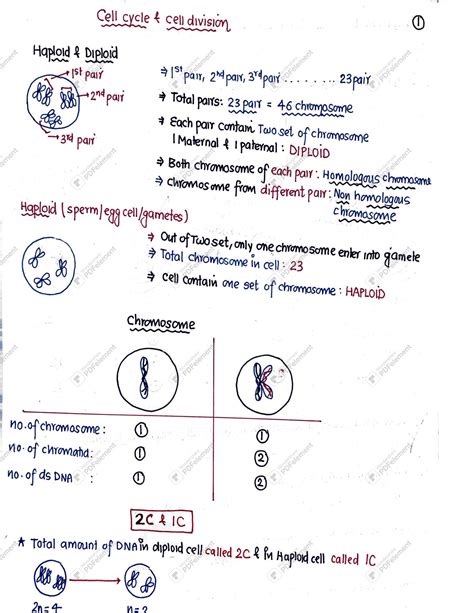 Cell cycle & cell division
1
Haploid & Diploid
1st pair
2nd pair
3rd pair
⇒ 1st pair, 2nd pair, 3rd pair ........ 23 pair
⇒ Total pairs: 23 pair = 46 chromosome
⇒ Each pair contain Two set of chromosome
1 Maternal & 1 paternal : DIPLOID
⇒ Both chromosome of each pair : Homologous chromosome
⇒ Chromosome from different pair : Non homologous
chromosome
Haploid (sperm/egg cell/gametes)
⇒ Out of Two set, only one chromosome enter into gamete
⇒ Total chromosome in cell : 23
⇒ Cell contain one set of chromosome : HAPLOID
Chromosome
no. of chromosome : 1 1
no. of chromatid : 1 2
no. of ds DNA : 1 2
2C & 1C
★ Total amount of DNA in diploid cell called 2C & in Haploid cell called 1C
2n=4
PDFelement